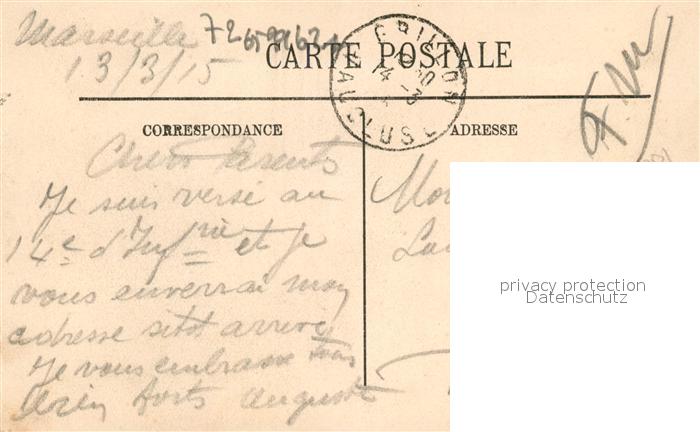 Marseille
13/3/15
CARTE POSTALE
CORRESPONDANCE
ADRESSE
F.M
Chers Parents
Je suis versé au
14e d'Infrie et je
vous enverrai mon
adresse sitot arrivé
Je vous embrasse tous
bien forts Auguste
privacy protection
Datenschutz